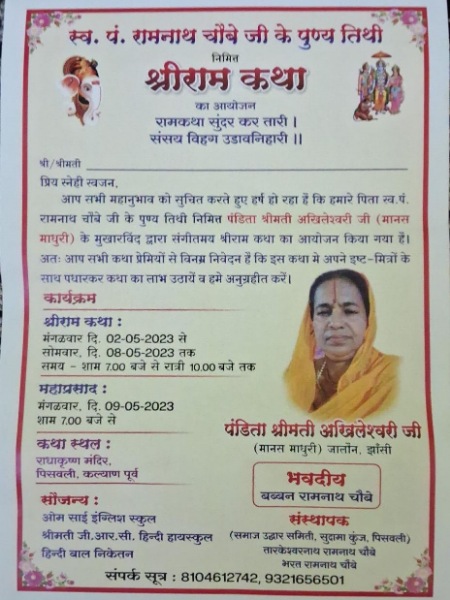 स्व. पं. रामनाथ चौबे जी के पुण्य तिथी
निमित्त
श्रीराम कथा
का आयोजन
रामकथा सुंदर कर तारी ।
संसय विहग उडावनिहारी ।।
श्री/श्रीमती
प्रिय स्नेही स्वजन,
आप सभी महानुभाव को सुचित करते हुए हर्ष हो रहा हैं कि हमारे पिता स्व.पं.
रामनाथ चौबे जी के पुण्य तिथी निमित्त पंडिता श्रीमती अखिलेश्वरी जी (मानस
माधुरी) के मुखारविंद द्वारा संगीतमय श्रीराम कथा का आयोजन किया गया हैं।
अतः आप सभी कथा प्रेमियों से विनम्र निवेदन हैं कि इस कथा मे अपने इष्ट-मित्रों के
साथ पधारकर कथा का लाभ उठायें व हमे अनुग्रहीत करें।
कार्यक्रम
श्रीराम कथा :
मंगळवार दि. 02-05-2023 से
सोमवार, दि. 08-05-2023 तक
समय - शाम 7.00 बजे से रात्री 10.00 बजे तक
महाप्रसाद :
मंगळवार, दि. 09-05-2023
शाम 7.00 बजे से
कथा स्थल :
राधाकृष्ण मंदिर,
पिसवली, कल्याण पूर्व
सौजन्य :
ओम साई इंग्लिश स्कुल
श्रीमती जी.आर.सी. हिन्दी हायस्कुल
हिन्दी बाल निकेतन
पंडिता श्रीमती अखिलेश्वरी जी
(मानस माधुरी) जालौन, झाँसी
भवदीय
बब्बन रामनाथ चौबे
संस्थापक
(समाज उद्धार समिती, सुदामा कुंज, पिसवली)
तारकेश्वरनाथ रामनाथ चौबे
भरत रामनाथ चौबे
संपर्क सूत्र : 8104612742, 9321656501